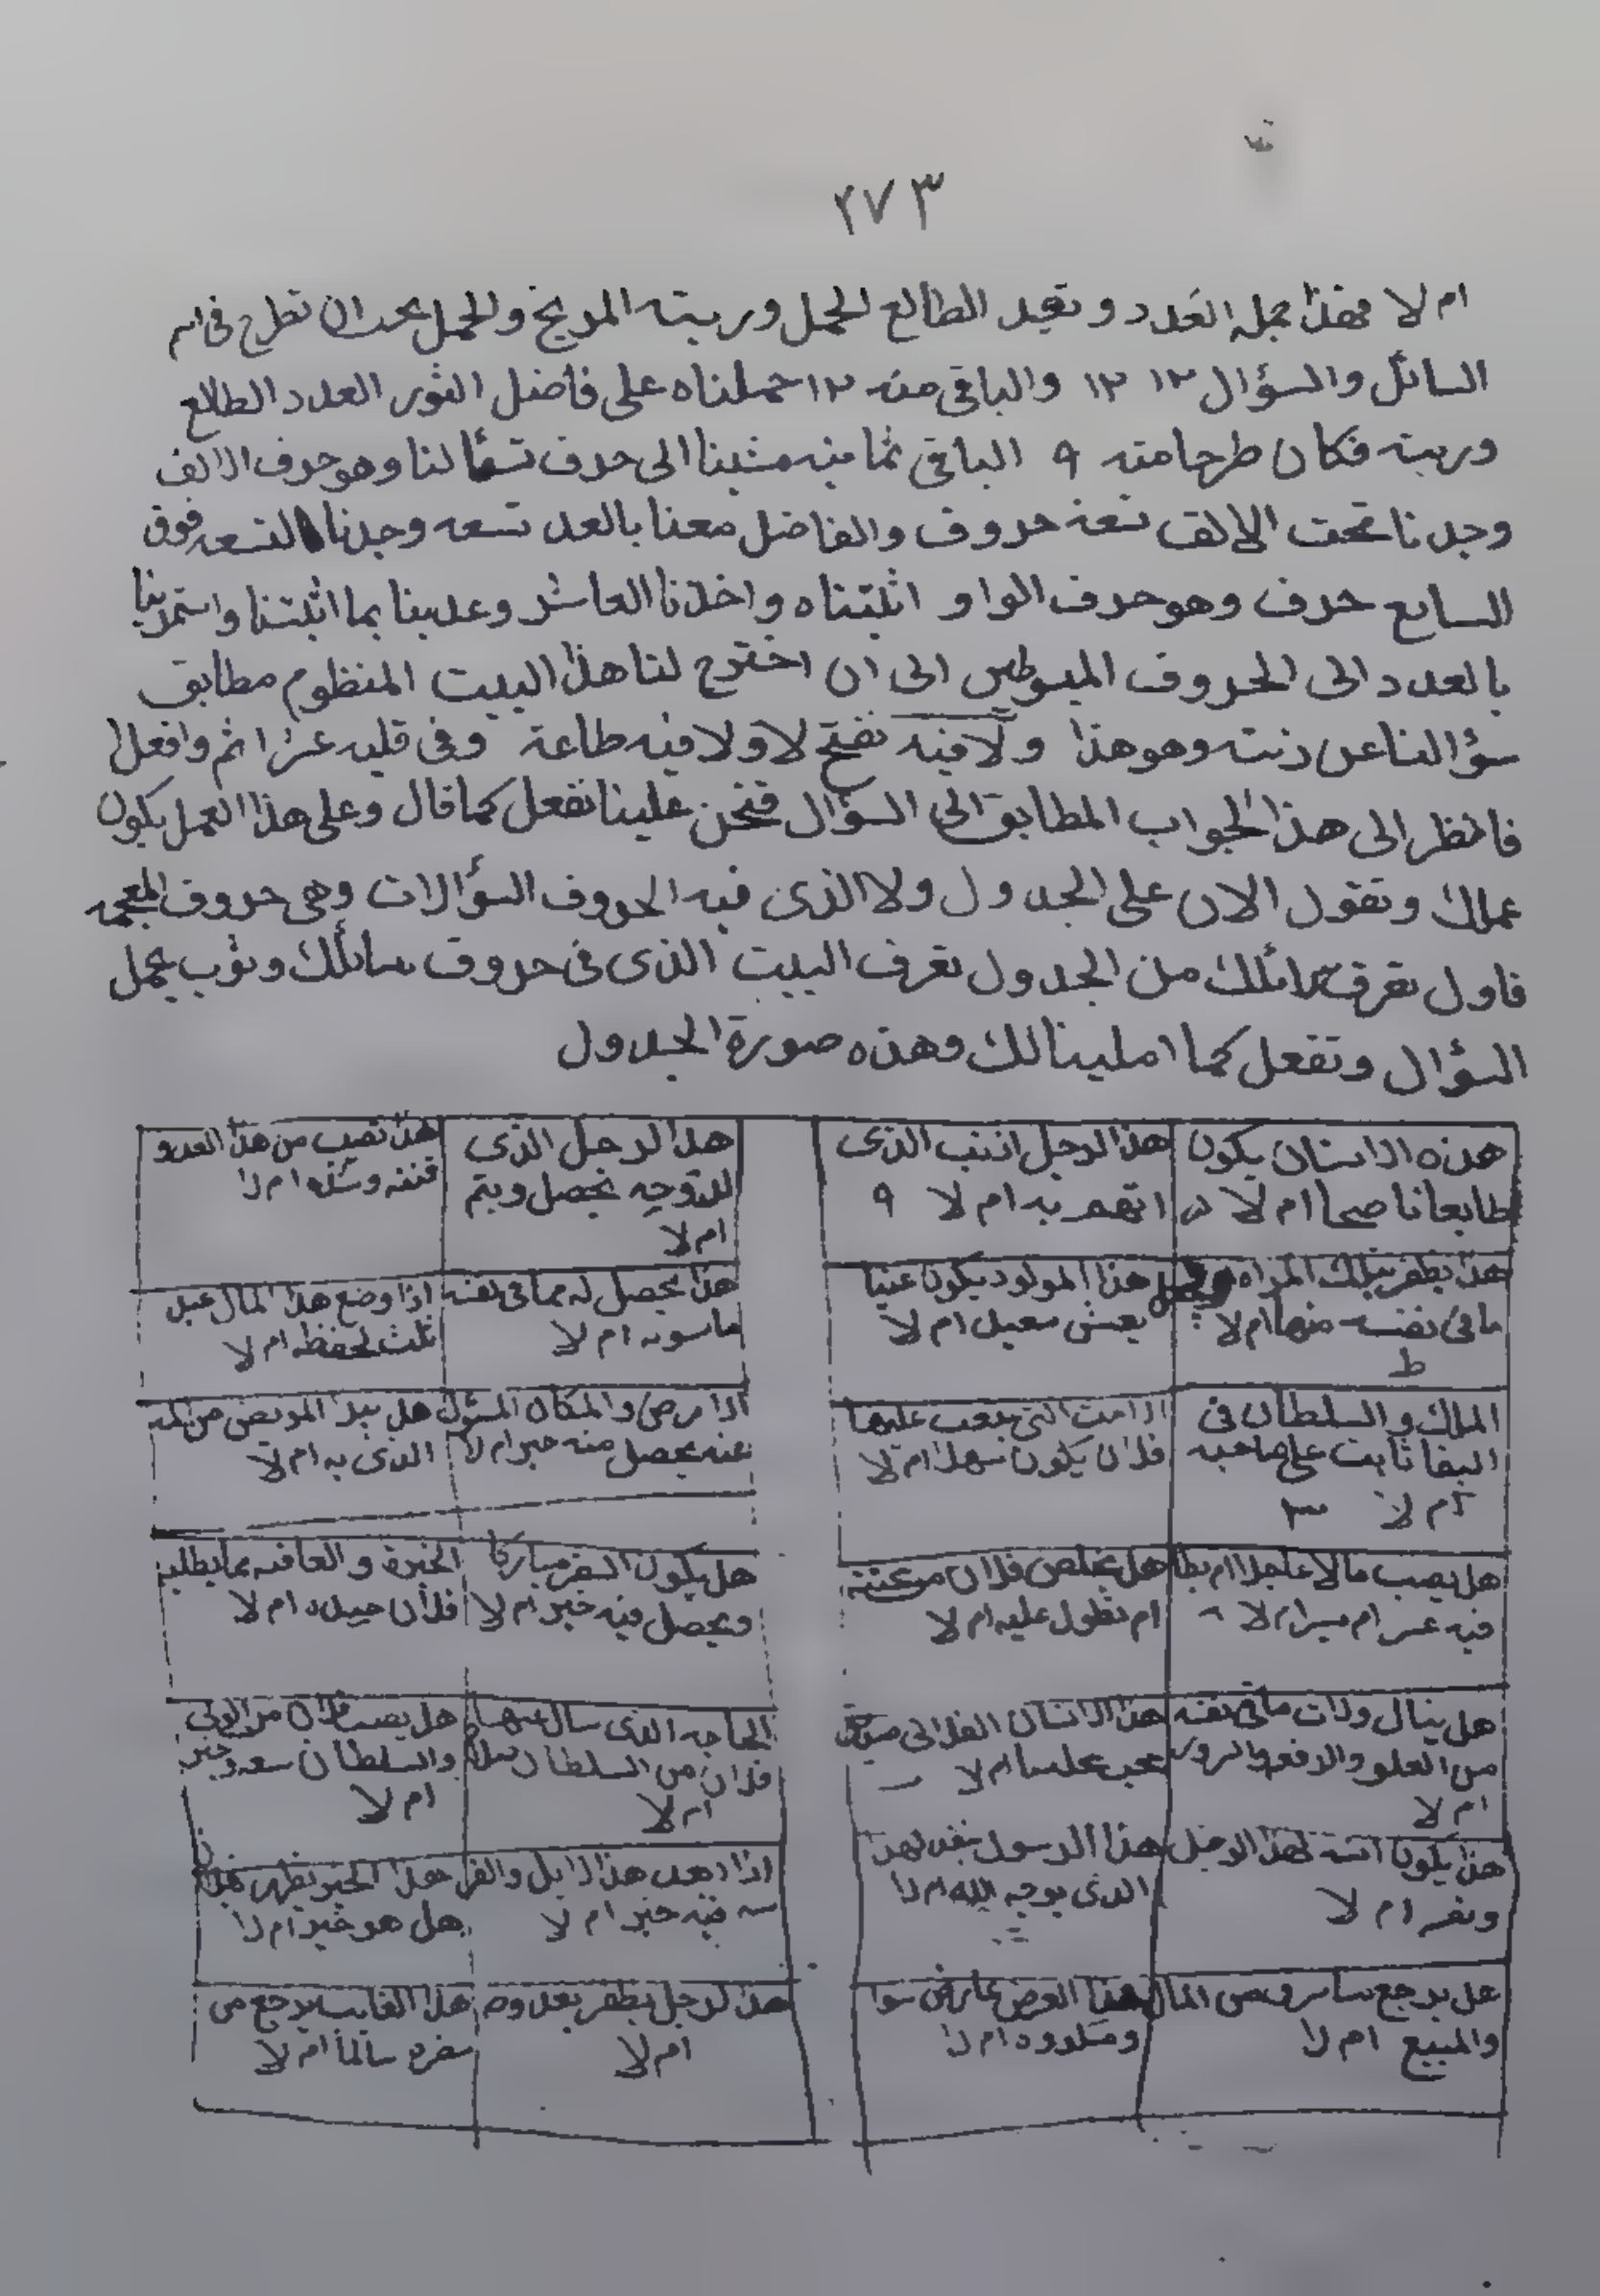 ٢٧٣
ام لا فهذا جملة العدد و تجد الطالع الحمل وربيته المريخ والحمل بحد ان تطرح في اسم
السائل والسؤال ١٢ ١٢ والباقي منه ١٢ حملناه على فاضل الثور العدد الطالع
وربيته فكان طرحا منه ٩ الباقي ثمانيه مشينا الى حرف تسألنا وهو حرف الالف
وجدنا تحت الالف تسعة حروف والفاضل معنا بالعدد تسعه وجدنا التسعه فوق
السابع حرف وهو حرف الواو اثبتناه واخذنا العاشر وعدينا بما اثبتنا واستمرينا
بالعدد الى الحروف المبسوطين الى ان اخترج لنا هذا البيت المنظوم مطابق
سؤالنا عن ذنته وهو هذا ولا فيه تفتح لا ولا فيه طاعة وفي قلبه عزا ثم وافعلا
فانظر الى هذا الجواب المطابق الى السؤال فنحن علينا نفعل كما قال وعلى هذا العمل يكون
عملك وتقول الان على الجدول ولا الذي فيه الحروف السؤالات وهي حروف المعجمه
فاول تعرف من الجدول تعرف البيت الذي في حروف سائلك وتؤب بجمل
السؤال وتفعل كما املينا لك وهذه صورة الجدول
هذه الانسان يكون
طايعا ناصحا ام لا
هذا الرجل اذنب الذي
اتهم به ام لا ٩
هذا الرجل الذي
للتوجه يحصل ويتم
ام لا
هذا نصيب من هذا العدو
فتنه وشده ام لا
هذا يظفر بتلك المراه
ما في نفسه منها ام لا
ط
هذا المولود يكون غنيا
يعيش سعيد ام لا
هذا يحصل له مما في نفسه
ام لا
اذا وضع هذا المال عند
ثلث تحفظه ام لا
الملك والسلطان في
البقا ثابت على صاحبه
ام لا ٣
التي تعب عليها
فلان يكون سهلا ام لا
المرض والمكان المسؤل
عنه يحصل منه خير ام لا
هل يبرا المريض من المه
الذي به ام لا
هل يصيب مالا عاجلا ام بطا
فيه عسر ام يسر ام لا
هل يخلص فلان من
ام تطول عليه ام لا
هل يكون السفر مباركا
ويحصل فيه خير ام لا
الخيرة والعافيه مما يطلبه
فلان جيده ام لا
هل ينال ما في نفسه
من العلو والرفعه
ام لا
هذا الانسان الفلاني صديق
ام لا
الحاجه الذي سال عنها
فلان من السلطان
ام لا
هل يصيب فلان من الولي
والسلطان سعد وخير
ام لا
هذا يكون لهذا الرجل
ام لا
هذا الرسول ينفد لهذا
الذي يوجه اليه ام لا
اذا هذا الابل والبقر
فيه خير ام لا
هذا الخبر يظهر
هل هو خير ام لا
هل يرجع ما سرق من المال
والمبيع ام لا
هذا العرض عارض سوا
ام لا
هذا الرجل يظفر بعدوه
ام لا
هذا الغايب يرجع من
سفره سالما ام لا